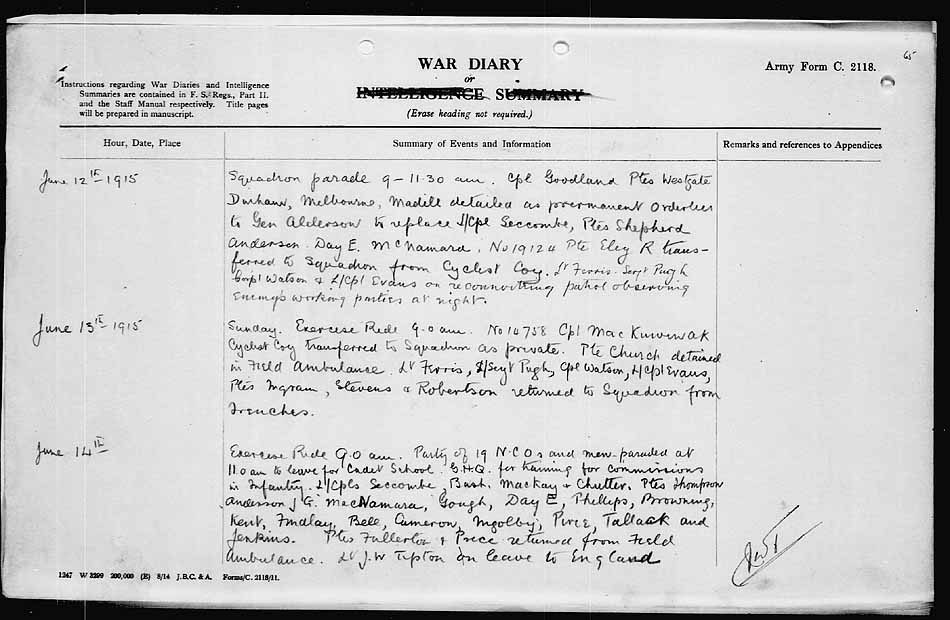 65
WAR DIARY
or
INTELLIGENCE SUMMARY
(Erase heading not required.)
Army Form C. 2118.
Instructions regarding War Diaries and Intelligence
Summaries are contained in F. S. Regs., Part II.
and the Staff Manual respectively. Title pages
will be prepared in manuscript.
Hour, Date, Place
Summary of Events and Information
Remarks and references to Appendices
June 12th 1915
Squadron parade 9 – 11.30 am. Cpl Goodland Ptes Westgate
Durham, Melbourne, Madill detailed as permanent Orderlies
to Gen Alderson to replace L/Cpl Seccombe, Ptes Shepherd
Anderson. Day E. McNamara. No 19124 Pte Eley R trans-
ferred to Squadron from Cyclist Coy. Lt Ferris. Sergt Pugh
Corpl Watson & L/Cpl Evans on reconnoitring patrol observing
Enemy's working parties at night.
June 13th 1915
Sunday. Exercise Ride 9.0 am. No 14758 Cpl Mac
Cyclist Coy transferred to Squadron as private. Pte Church detained
in Field Ambulance. Lt Ferris, L/Sergt Pugh, Cpl Watson, L/Cpl Evans,
Ptes Ingram, Stevens & Robertson returned to Squadron from
Trenches.
June 14th
Exercise Ride 9.0 am. Party of 19 N.C.Os and men paraded at
11.0 am to leave for Cadet School. G.H.Q. for training for commissions
in Infantry. L/Cpls Seccombe, Bush. Mackay & Chutter. Ptes Thompson
Anderson J G. MacNamara, Gough, Day E, Phillips, Browning,
Kent, Findlay, Bell, Cameron, Ingolby, Pirie, Tallack and
Jenkins. Ptes Fullerton & Price returned from Field
Ambulance. Lt J.W Tipton on leave to England
1247 W 3299 200,000 (E) 8/14 J.B.C. & A. Forms/C. 2118/11.